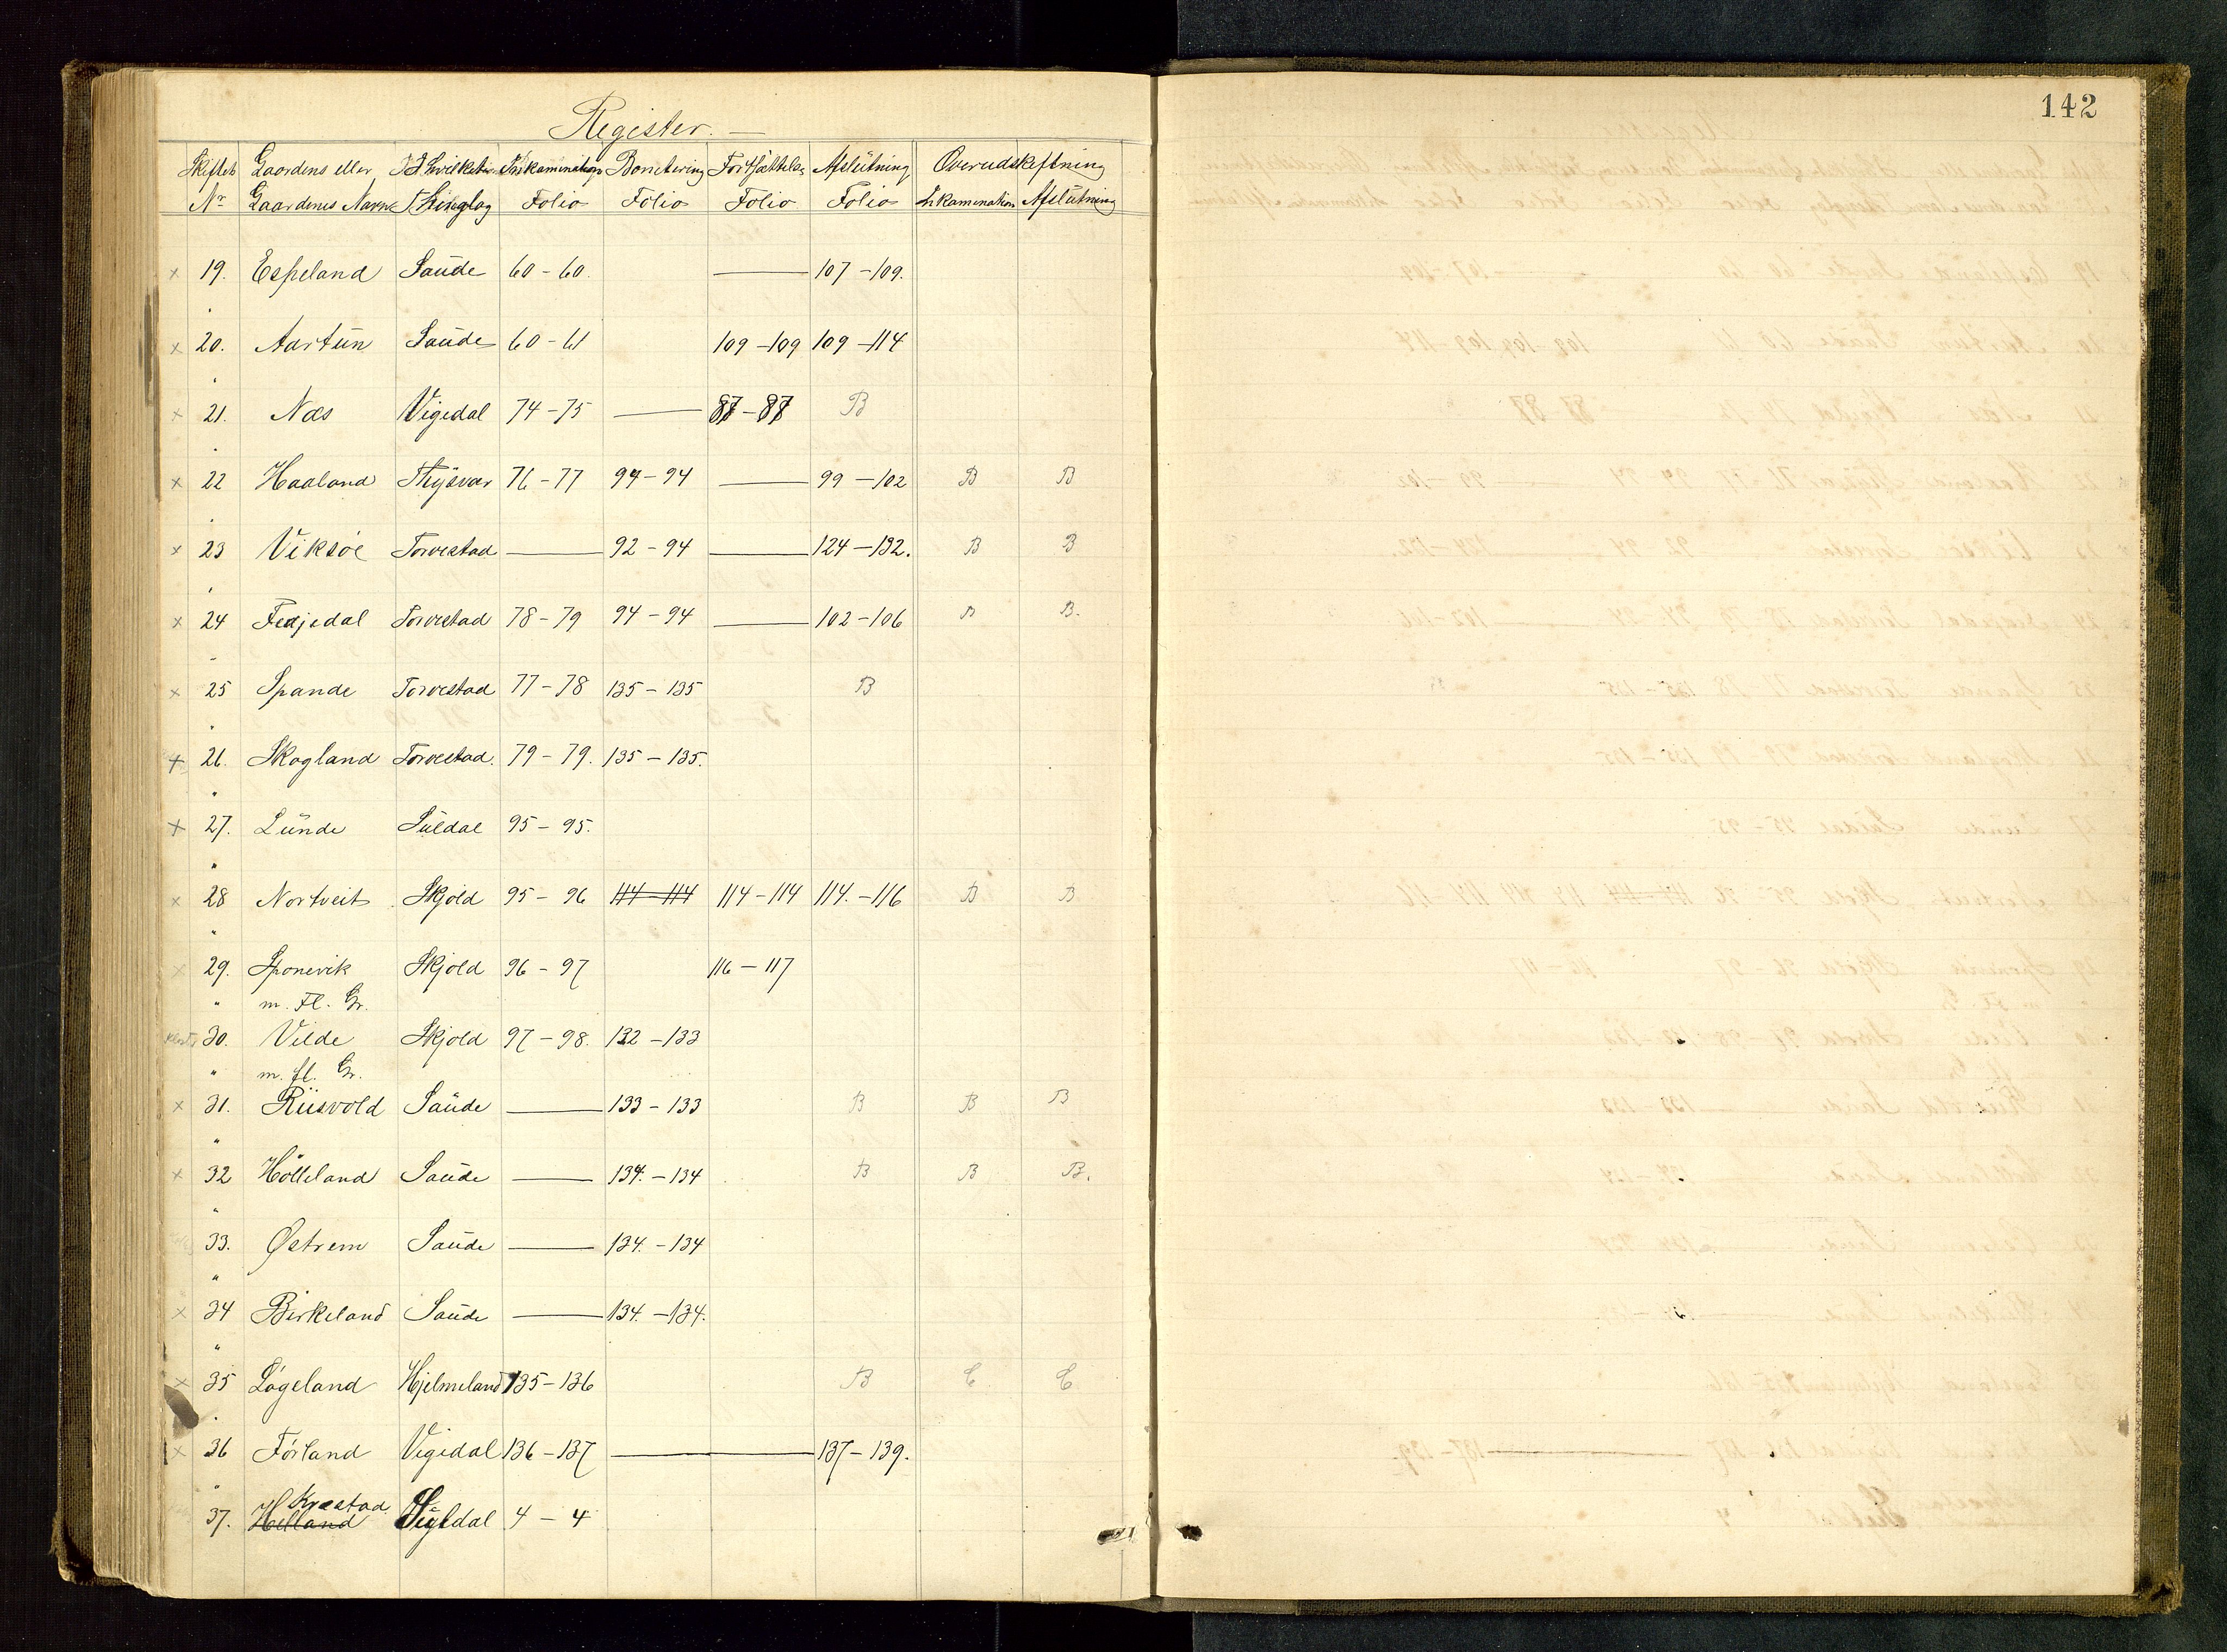 142
Register. —
Skiftets Gaardens eller I hvilket Inkamination Bonitering Fortsættelse Afslutning Overudskiftning
Nr Gaardenes Navn Thinglag Folio Folio Folio Folio Inkamination Afslutning
x 19. Espeland Saude 60 - 60. — 107 - 109.
x 20. Aartun Saude 60 - 61 109 - 109 109 - 114
x 21. Næs Vigedal 74 - 75 — 87 - 87 B
x 22 Haaland Thysvær 76 - 77 94 - 94 — 99 - 102 B B
x 23 Viksøe Torvestad — 92 - 94 — 124 - 132. B B
x 24 Fedjedal Torvestad 78 - 79 94 - 94 — 102 - 106 B B.
x 25 Spande Torvestad 77 - 78 135 - 135 B
x 26. Skogland Torvestad. 79 - 79. 135 - 135.
x 27. Lunde Suldal 95 - 95.
x 28 Nortveit Skjold 95 - 96 114 - 114 114 - 114 114. - 116 B B
x 29. Sponevik Skjold 96 - 97 116 - 117
" m. Fl. Gr.
30. Vilde Skjold 97 - 98. 132 - 133
" m. fl. Gr.
x 31. Riisvold Saude — 133 - 133 B B B
x 32 Hölleland Saude — 134. - 134 B B B.
33. Østrem Saude — 134. - 134
x 34 Birkeland Saude — 134. - 134.
x 35 Løgeland Hjelmeland 135 - 136 B C C
x 36 Førland Vigedal 136 - 137 — 137 - 139.
Kvæstad
37. Helland Suldal 4 - 4